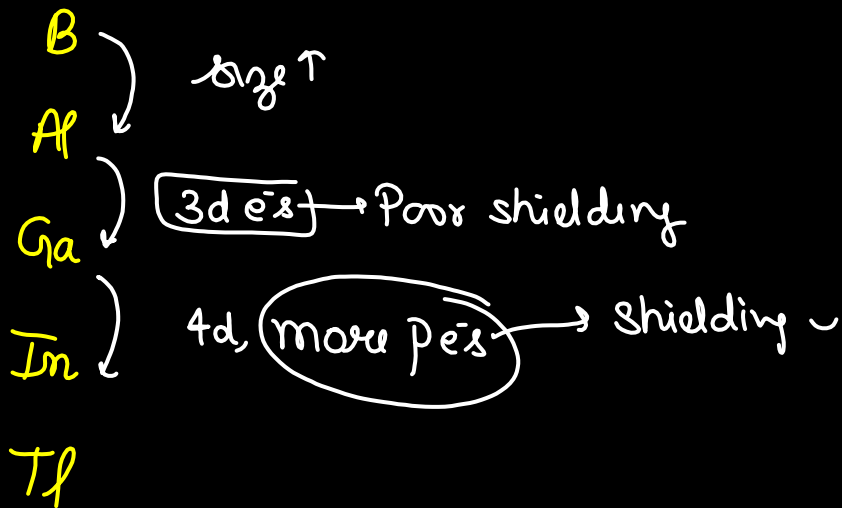 B
size ↑
Al
3d e⁻s → Poor shielding
Ga
4d, more p e⁻s → shielding
In
Tl